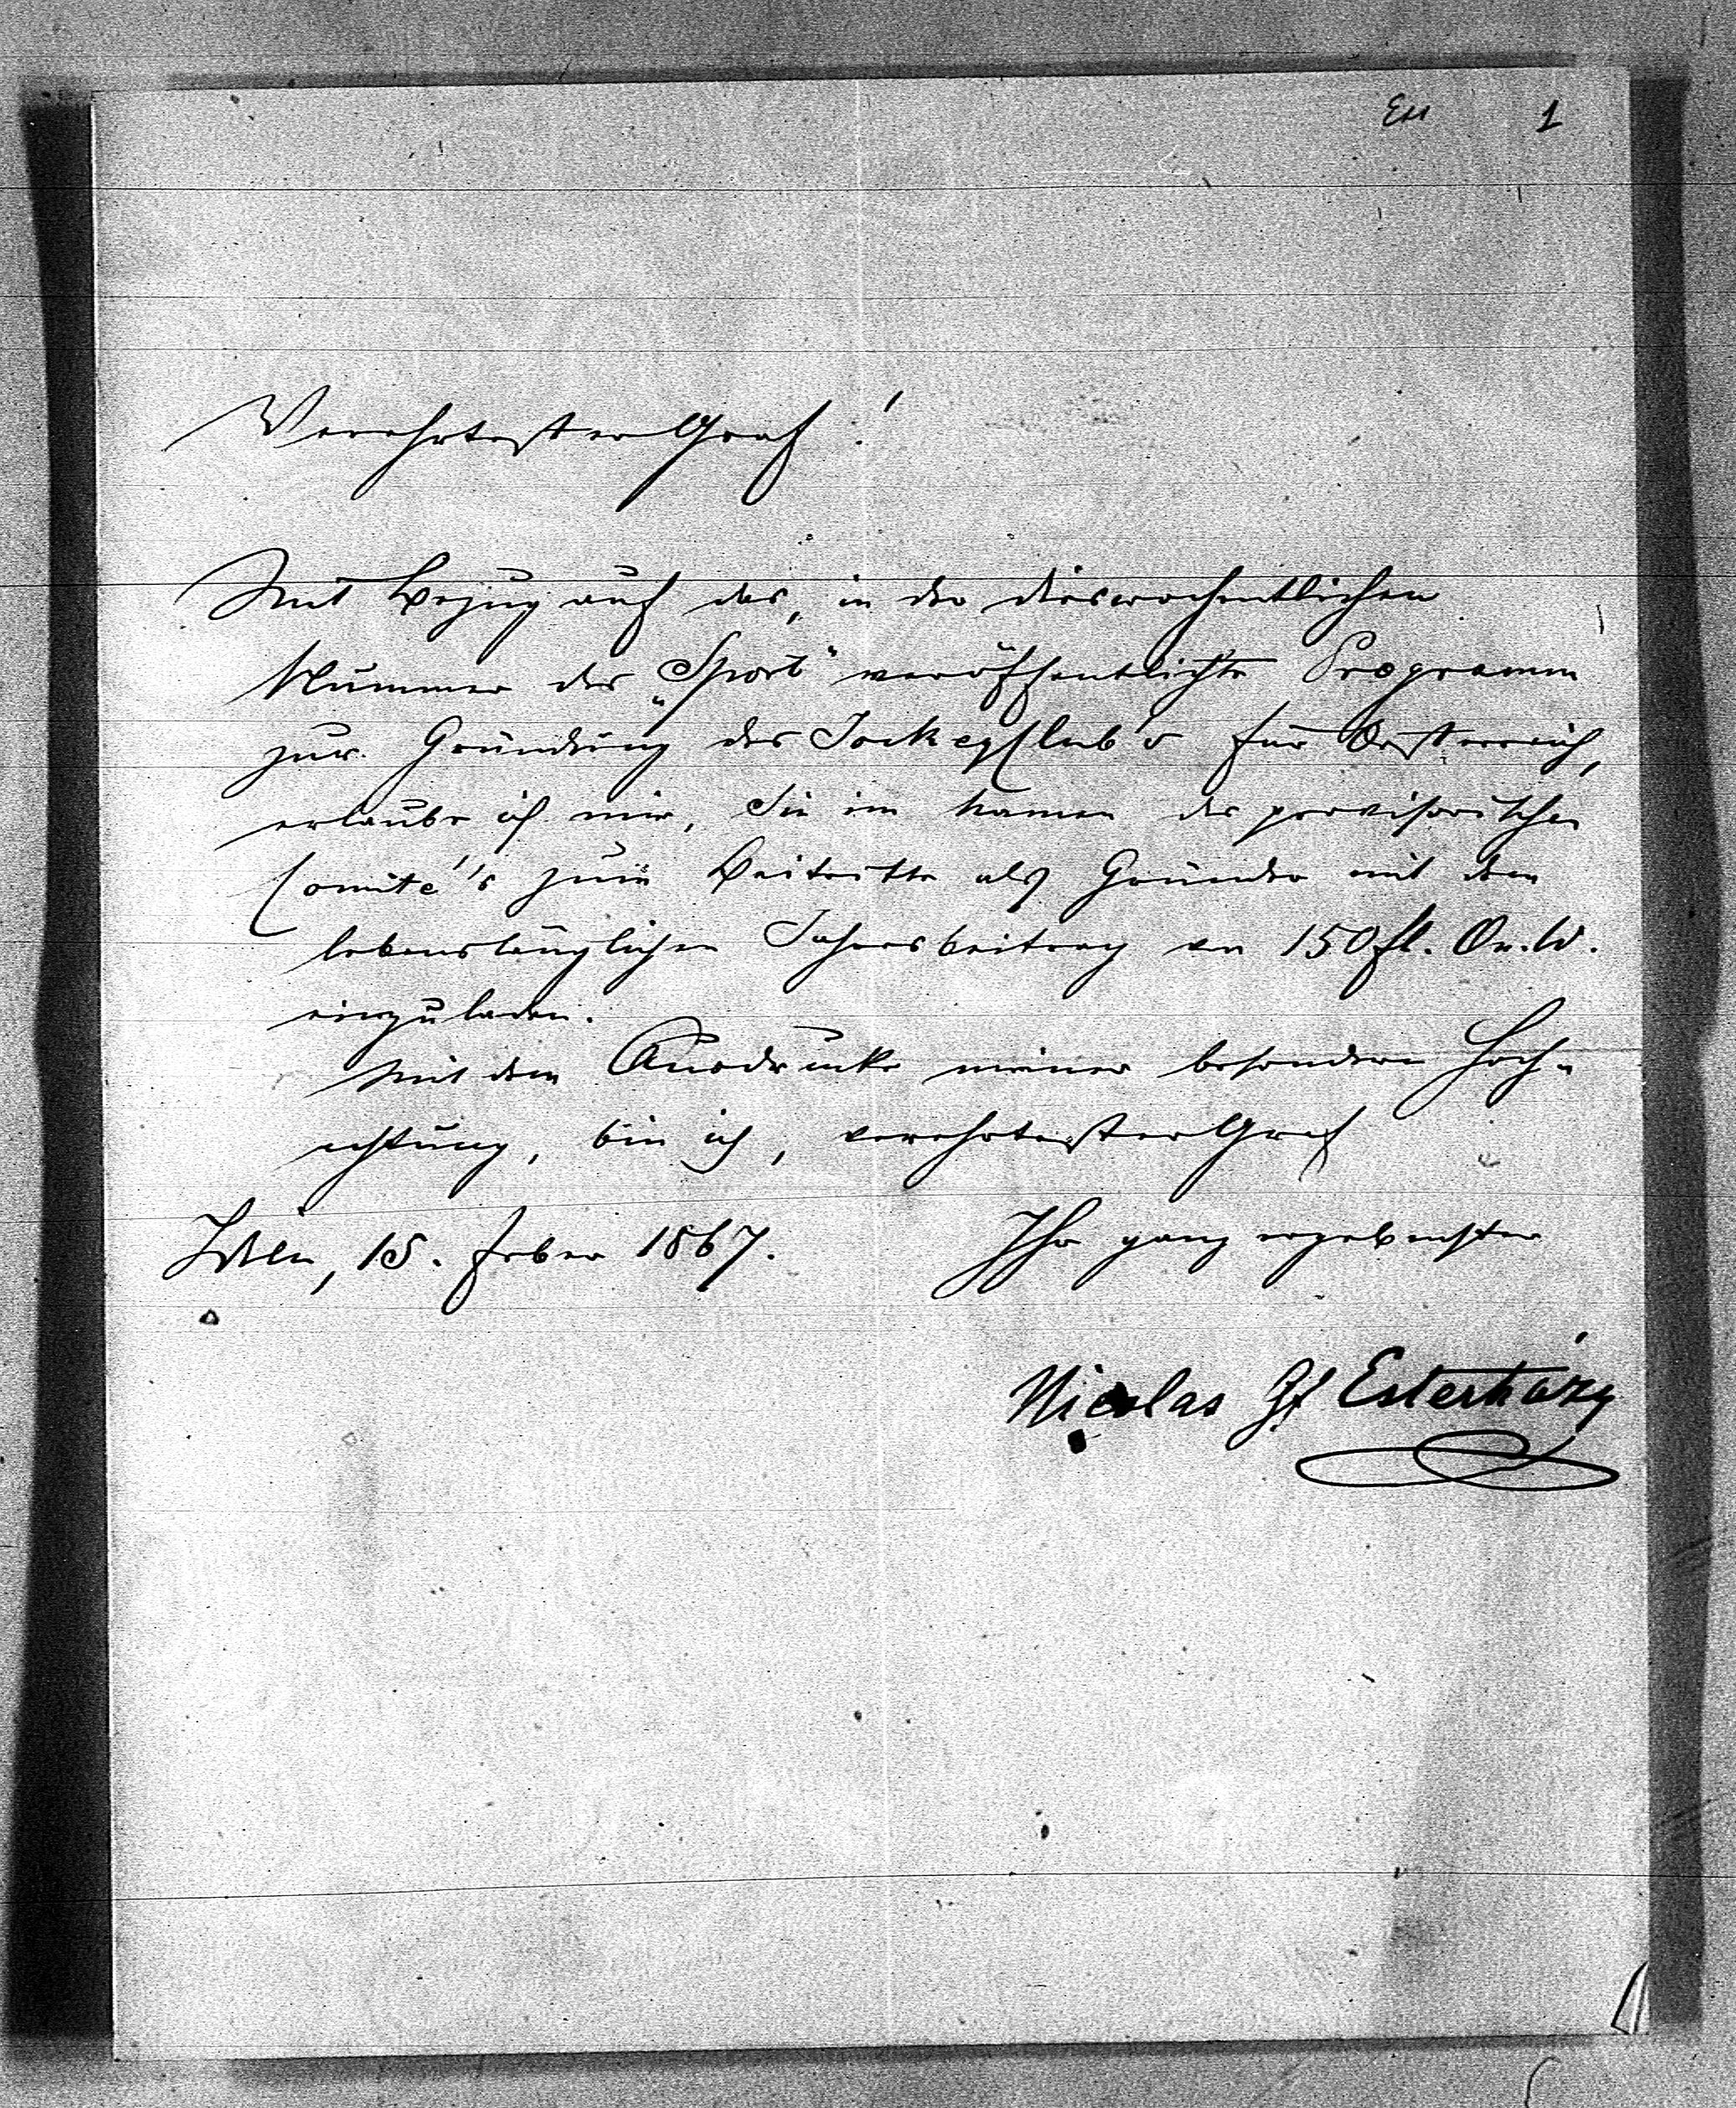 1
Verehrtester Graf!
Mit Bezug auf das, in der dieswochentlichen
Nummer des „Sport" veröffentlichte Programm
zur Gründung des Jockeyclub's für Oesterreich,
erlaube ich mir, Sie im Namen des provisorischen
Comité's zum Beitritte als Gründer mit dem
lebenslänglichen Jahresbeitrag von 150 fl. Oe. W.
einzuladen.
Mit dem Ausdrucke meiner besondern Hoch-
achtung, bin ich, verehrtester Graf
Wien, 15. Feber 1867. Ihr ganz ergebenster
Nicolas Gf Esterházy